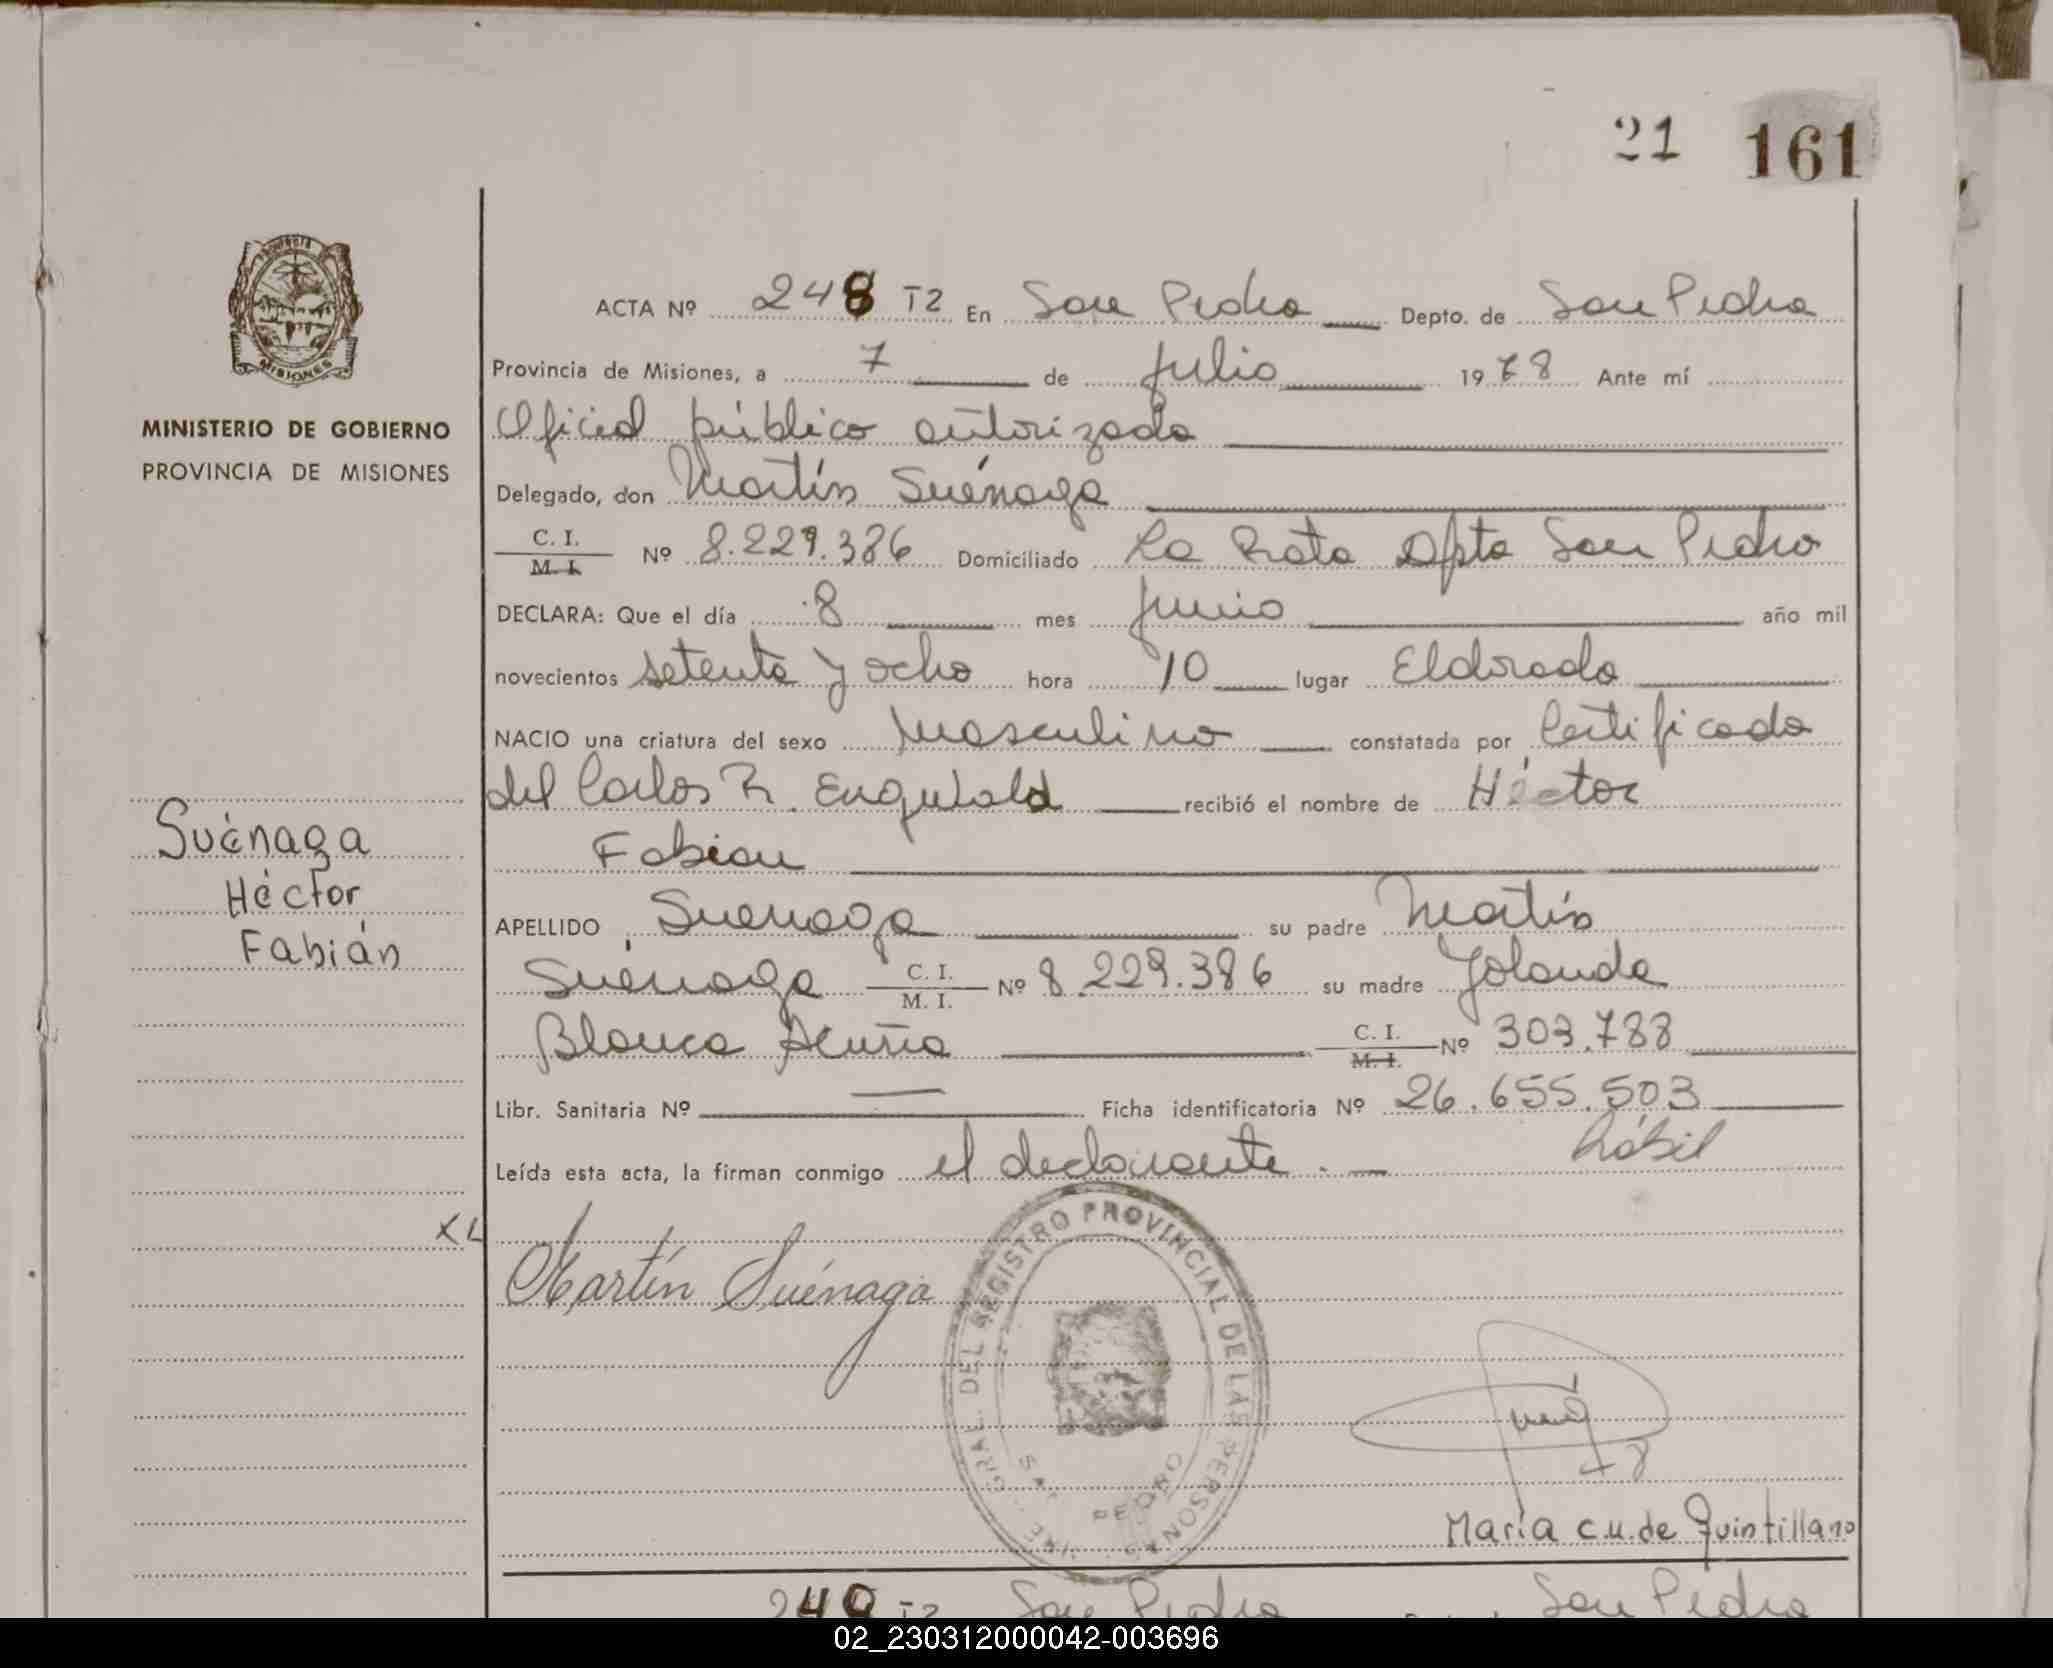 21 161
PROVINCIA
MISIONES
MINISTERIO DE GOBIERNO
PROVINCIA DE MISIONES
ACTA Nº 248 T2 En San Pedro Depto. de San Pedro
Provincia de Misiones, a 7 de Julio 1978 Ante mí
Oficial público autorizado
Delegado, don Martín Suénaga
C. I.
M. I. Nº 8.229.386 Domiciliado La Rota Dpto San Pedro
DECLARA: Que el día 8 mes Junio año mil
novecientos setenta y ocho hora 10 lugar Eldorado
NACIO una criatura del sexo masculino constatada por Certificado
del Carlos R. recibió el nombre de Héctor
Fabian
APELLIDO Suenaga su padre Martín
Suénaga C. I. M. I. Nº 8.229.386 su madre Yolanda
Blanca Acuña C. I. M. I. Nº 303.788
Libr. Sanitaria Nº — Ficha identificatoria Nº 26.655.503
Leída esta acta, la firman conmigo el declarante. — hábil
Suénaga
Héctor
Fabián
XL
Martín Suénaga
DEL REGISTRO PROVINCIAL DE LAS PERSONAS
SAN PEDRO
María C.U. de Quintillano
249 T2 San Pedro San Pedro
02_230312000042-003696